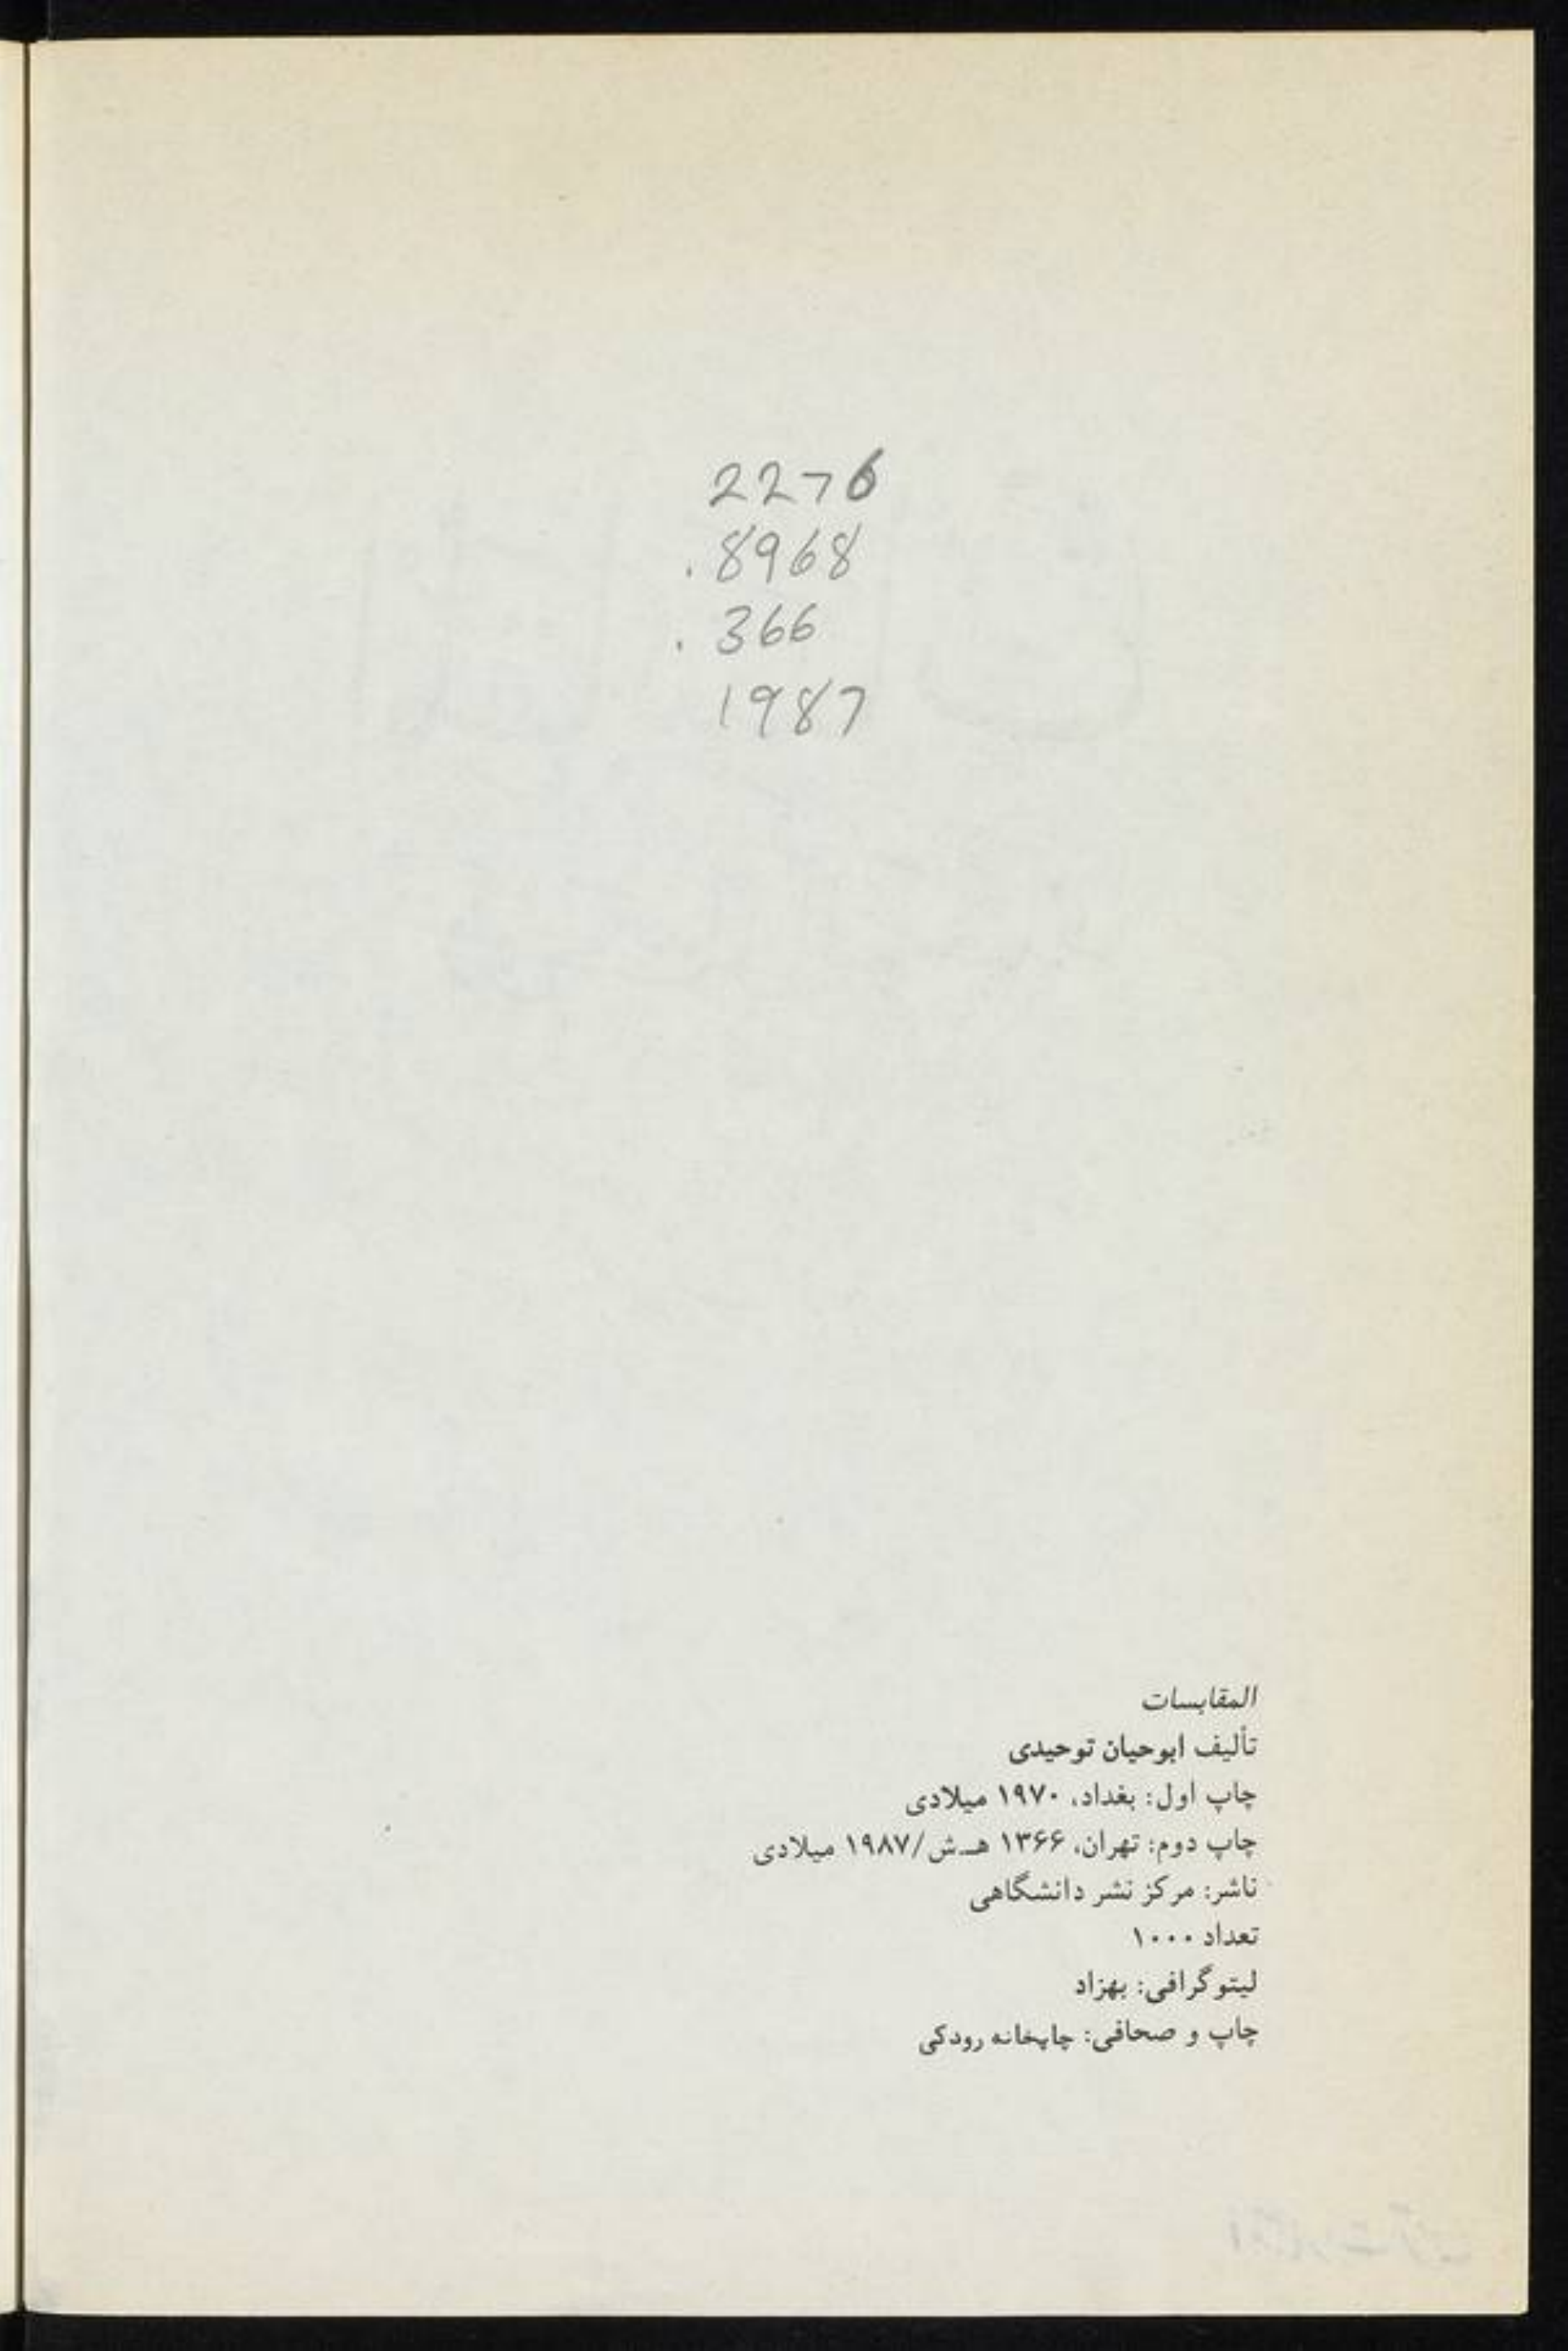 2276
.8968
.366
1987
المقابسات
تألیف ابوحیان توحیدی
چاپ اول: بغداد، ۱۹۷۰ میلادی
چاپ دوم: تهران، ۱۳۶۶ هـ.ش/۱۹۸۷ میلادی
ناشر: مرکز نشر دانشگاهی
تعداد ۱۰۰۰
لیتوگرافی: بهزاد
چاپ و صحافی: چاپخانه رودکی